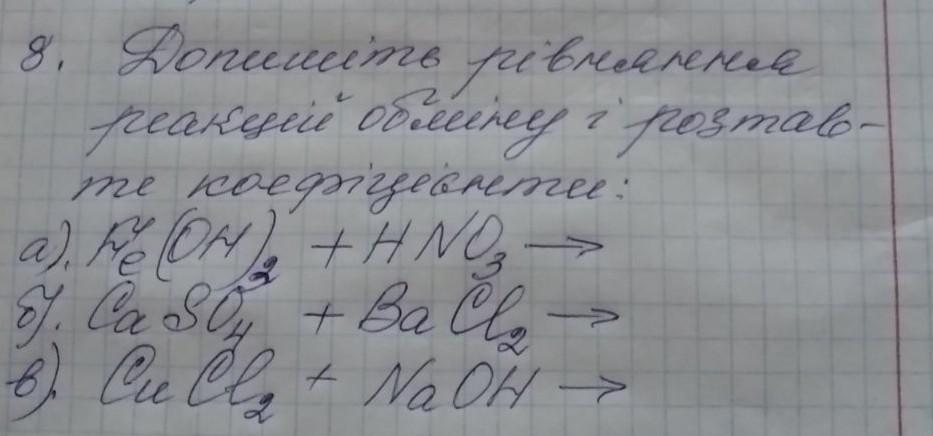 8. Допишіть рівняння
реакцій обміну і розтав-
те коефіцієнти:
а). Fe(OH)₂ + HNO₃ →
б). CaSO₄ + BaCl₂ →
в). CuCl₂ + NaOH →